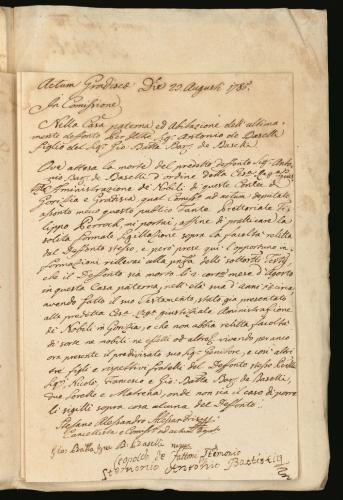 Actum Gradisca Die 23 Augusti 178
In Comissione
Nella Casa paterna ed Abitazione dell' ultima-
mente defonto Sig. Antonio de Baselli
figlio del Sig. Gio Batta Bar. de Baselli
Ove attesa la morte del predetto defonto Sig. Anto-
nio Bar. de Baselli d'ordine della
Amministrazione de Nobili di queste Contee di
Gorizia e Gradisca, qual Comiss. ad actum deputato
assonto meco questo publico Fante Pretoriale Fi-
lippo mi portai, affine di pratticare la
solita formale sigillazione sopra la facoltà relitta
del Defonto stesso, e però prese qui l'opportune in-
formazioni rilevai alla pnza delle sottoscritti Testij
che il Defonto sia morto li corte mese d'Agosto
in questa Casa paterna, nell' età sua d'anni
avendo fatto il suo Testamento, stato già presentato
alla predetta giustiziale Aministrazione
de Nobili in Gorizia, e che non abbia relitta facoltà
di sorte ne nobili ne effetti od altro, vivendo per anco
ora presente il predivisato suo Sig. Genitore, e con altri
tre figli e rispettivi fratelli del Defonto stesso
Sig. Nicolò, Francesco e Gio: Batta Bar. de Baselli,
due Sorelle e Matregna, onde non sia il caso di porre
li sigilli sopra cosa alcuna del Defonto.
Stefano Alessandro
Cancellista e Comiss. ad actum
Gio: Batta Bar. B. Baselli
Leopoldo de Fattori Stemonio
Stemonio Antonio Battistig